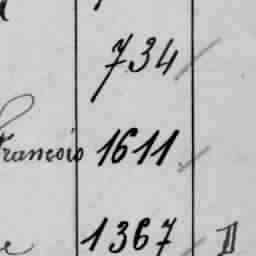 734
François 1611
1367